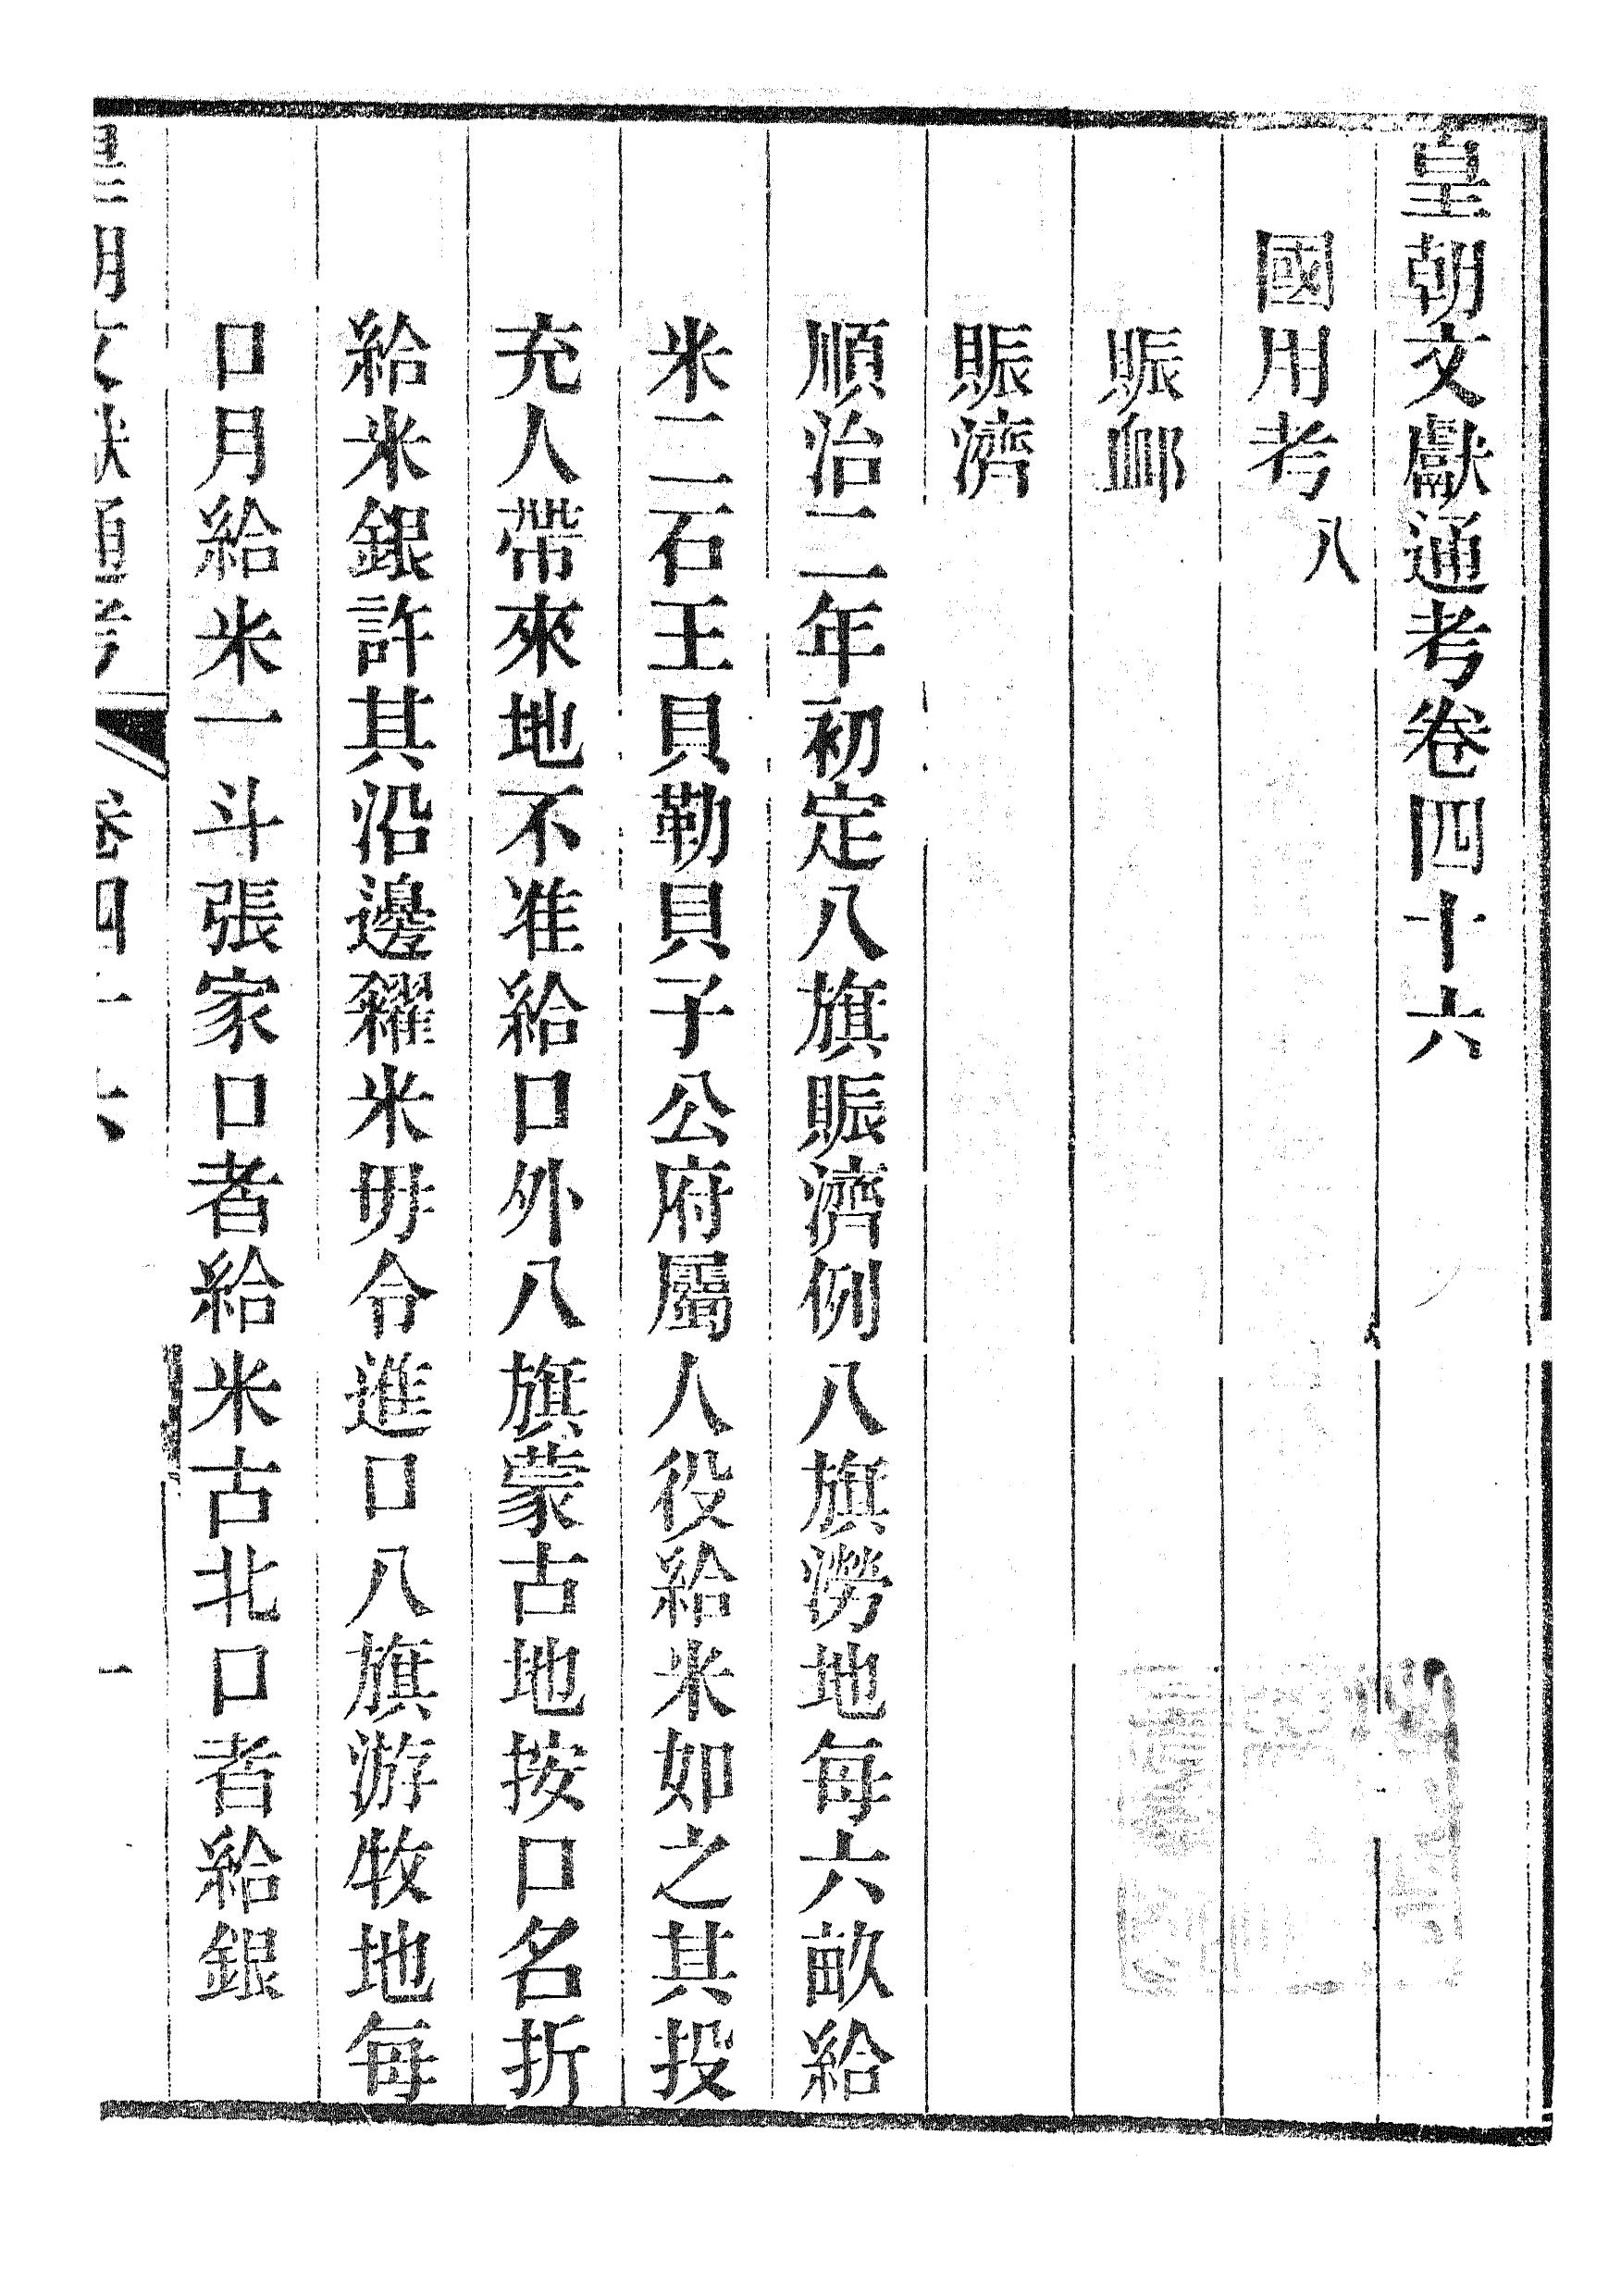 皇朝文獻通考卷四十六
國用考八
賑卹
賑濟
順治二年初定八旗賑濟例八旗澇地每六畝給
米二石王貝勒貝子公府屬人役給米如之其投
充人帶來地不准給口外八旗蒙古地按口名折
給米銀許其沿邊糴米毋令進口八旗游牧地每
口月給米一斗張家口者給米古北口者給銀
皇朝文獻通考 卷四十六 一